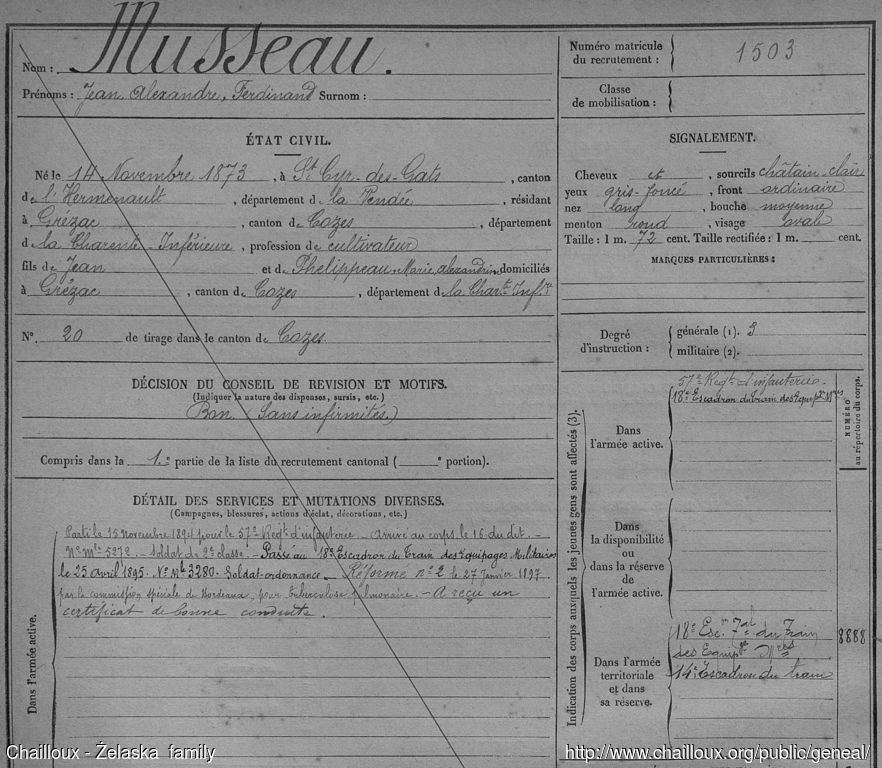 Nom : Musseau.
Prénoms : Jean, Alexandre, Ferdinand Surnom :
ÉTAT CIVIL.
Né le 14 Novembre 1873, à St Cyr-des-Gâts, canton
de l'Hermenault, département de la Vendée, résidant
à Grézac, canton de Cozes, département
de la Charente-Inférieure, profession de cultivateur
fils de Jean et de Phelippeau, Marie, alexandrine domiciliés
à Grézac, canton de Cozes, département de la Char.te Inf.re
N°. 20 de tirage dans le canton de Cozes.
DÉCISION DU CONSEIL DE REVISION ET MOTIFS.
(Indiquer la nature des dispenses, sursis, etc.)
Bon (Sans infirmités.)
Compris dans la 1.e partie de la liste du recrutement cantonal ( e portion).
DÉTAIL DES SERVICES ET MUTATIONS DIVERSES.
(Campagnes, blessures, actions d'éclat, décorations, etc.)
Dans l'armée active.
Parti le 15 Novembre 1894 pour le 57e Regt d'infanterie. Arrivé au corps, le 16 du dit. -
N° Mle 5272. - Soldat de 2e classe. - Passé au 18e Escadron du Train des Equipages Militaires
le 25 avril 1895. - N° Mle 3280. Soldat-ordonnance. - Réformé n° 2 le 27 Janvier 1897
par la commission spéciale de Bordeaux, pour tuberculose pulmonaire. - A reçu un
certificat de bonne conduite.
Numéro matricule
du recrutement : 1503
Classe
de mobilisation :
SIGNALEMENT.
Cheveux et, sourcils châtain-clair
yeux gris-foncé, front ordinaire
nez long, bouche moyenne
menton rond, visage ovale
Taille : 1 m. 72 cent. Taille rectifiée : 1 m. cent.
MARQUES PARTICULIÈRES :
Degré
d'instruction :
générale (1). 3
militaire (2).
Indication des corps auxquels les jeunes gens sont affectés (3).
NUMÉRO
au répertoire du corps.
Dans
l'armée active.
57e Regt d'infanterie.
18e Escadron du Train des Equip.ges M.res
Dans
la disponibilité
ou
dans la réserve
de
l'armée active.
Dans l'armée
territoriale
et dans
sa réserve.
18e Esc.on T.al du Train
des Equip.ges M.res
14e Escadron du train
8888
Chailloux - Żelaska family
http://www.chailloux.org/public/geneal/